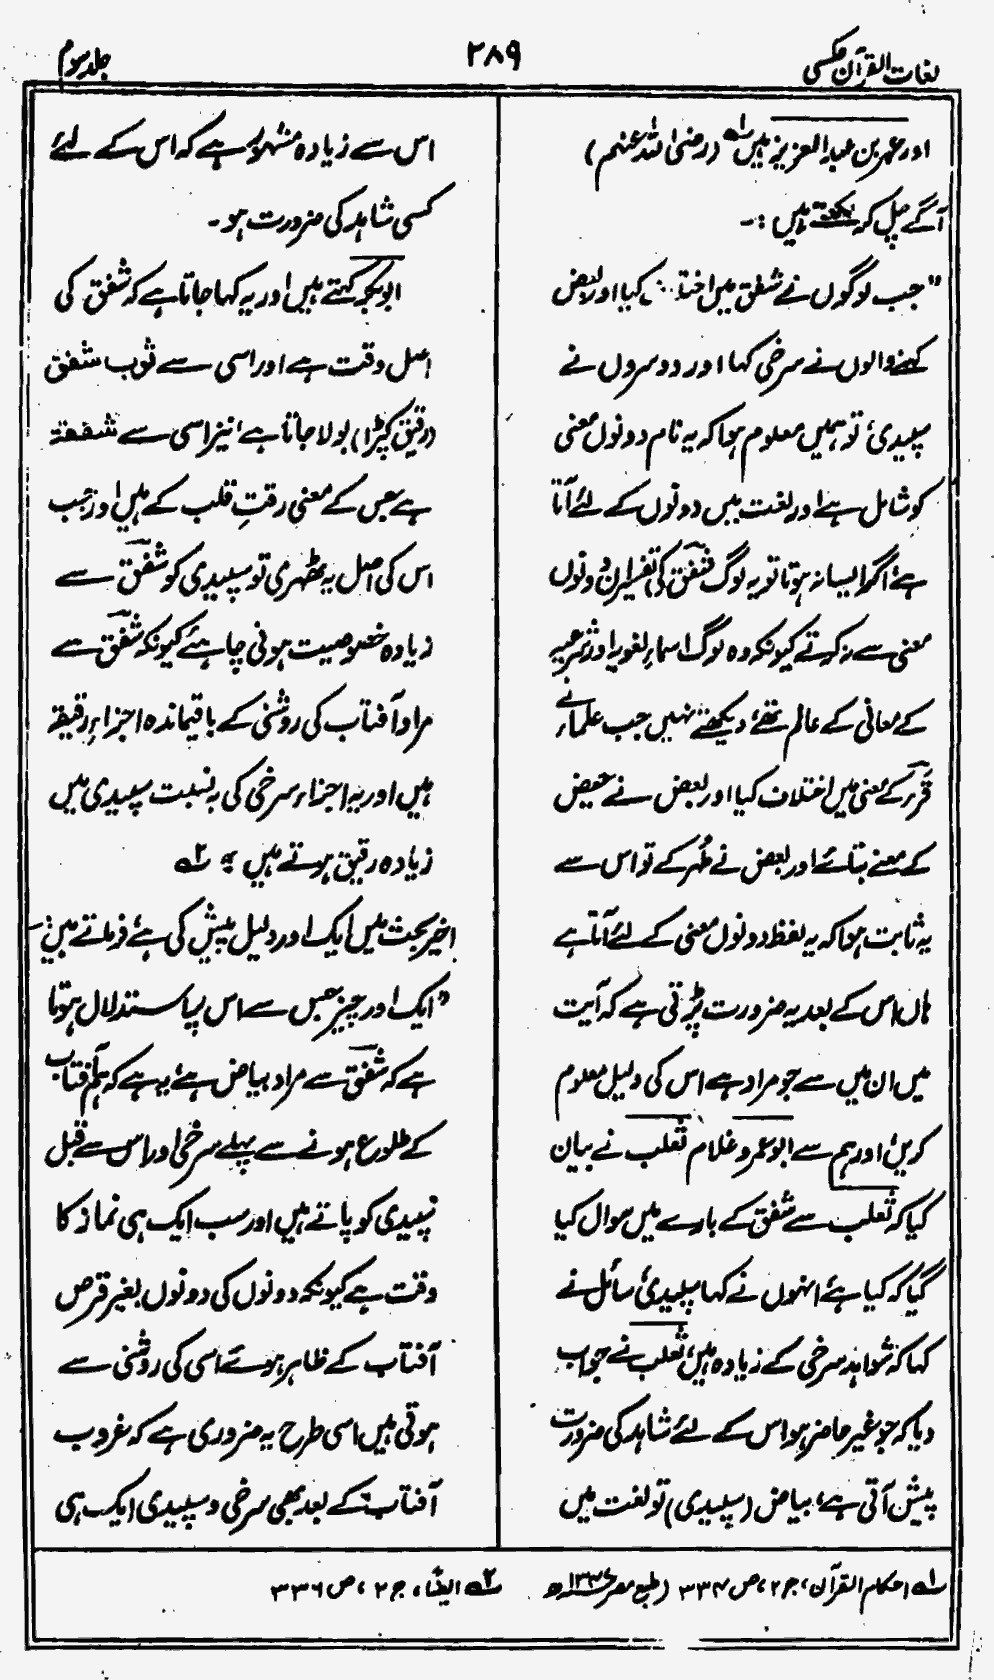 لغات القرآن عکسی
۲۸۹
جلد سوم
اور عمر بن عبد العزیز ہیں لہ (رضی اللہ عنہم)
آگے چل کر لکھتے ہیں :۔
"جب لوگوں نے شفق میں اختلاف کیا اور بعض
کہنے والوں نے سرخی کہا اور دوسروں نے
سپیدی، تو ہمیں معلوم ہوا کہ یہ نام دونوں معنی
کو شامل ہے اور لغت میں دونوں کے لئے آتا
ہے، اگر ایسا نہ ہوتا تو یہ لوگ شفق کی تفسیر ان دونوں
معنی سے نہ کرتے کیونکہ وہ لوگ اسماء لغویہ اور شرعیہ
کے معانی کے عالم تھے، دیکھتے نہیں جب علماء نے
قرء کے معنی میں اختلاف کیا اور بعض نے حیض
کے معنے بتائے اور بعض نے طُہر کے تو اس سے
یہ ثابت ہوا کہ یہ لفظ دونوں معنی کے لئے آتا ہے
ہاں اس کے بعد یہ ضرورت پڑتی ہے کہ آیت
میں ان میں سے جو مراد ہے اس کی دلیل معلوم
کریں، اور ہم سے ابو عمرو غلام ثعلب نے بیان
کیا کہ ثعلب سے شفق کے بارے میں سوال کیا
گیا کہ کیا ہے، انہوں نے کہا سپیدی، سائل نے
کہا کہ شواہد سرخی کے زیادہ ہیں، ثعلب نے جواب
دیا کہ جو غیر حاضر ہو اس کے لئے شاہد کی ضرورت
پیش آتی ہے، بیاض (سپیدی) تو لغت میں
اس سے زیادہ مشہور ہے کہ اس کے لئے
کسی شاہد کی ضرورت ہو۔
ابوبکر کہتے ہیں اور یہ کہا جاتا ہے کہ شفق کی
اصل وقت ہے اور اسی سے ثوب شفق
(رقیق کپڑا) بولا جاتا ہے، نیز اسی سے شفقۃ
ہے جس کے معنی رقتِ قلب کے ہیں اور جب
اس کی اصل یہ ٹھہری تو سپیدی کو شفق سے
زیادہ خصوصیت ہونی چاہئے کیونکہ شفق سے
مراد آفتاب کی روشنی کے باقیماندہ اجزاءِ رقیقہ
ہیں اور یہ اجزاء سرخی کی بہ نسبت سپیدی میں
زیادہ رقیق ہوتے ہیں" ۲ہ
اخیر بحث میں ایک اور دلیل پیش کی ہے، فرماتے ہیں:۔
"ایک اور چیز جس سے اس پر استدلال ہوتا
ہے کہ شفق سے مراد بیاض ہے، یہ ہے کہ ہم آفتاب
کے طلوع ہونے سے پہلے سرخی اور اس سے قبل
سپیدی کو پاتے ہیں اور سب ایک ہی نماز کا
وقت ہے کیونکہ دونوں کی دونوں بغیر قرص
آفتاب کے ظاہر ہوئے اسی کی روشنی سے
ہوتی ہیں اسی طرح یہ ضروری ہے کہ غروب
آفتاب کے بعد بھی سرخی و سپیدی ایک ہی
لہ احکام القرآن، ج ۲، ص ۳۳۴ (طبع مصر ھ
۲ہ ایضًا، ج ۲، ص ۳۳۶